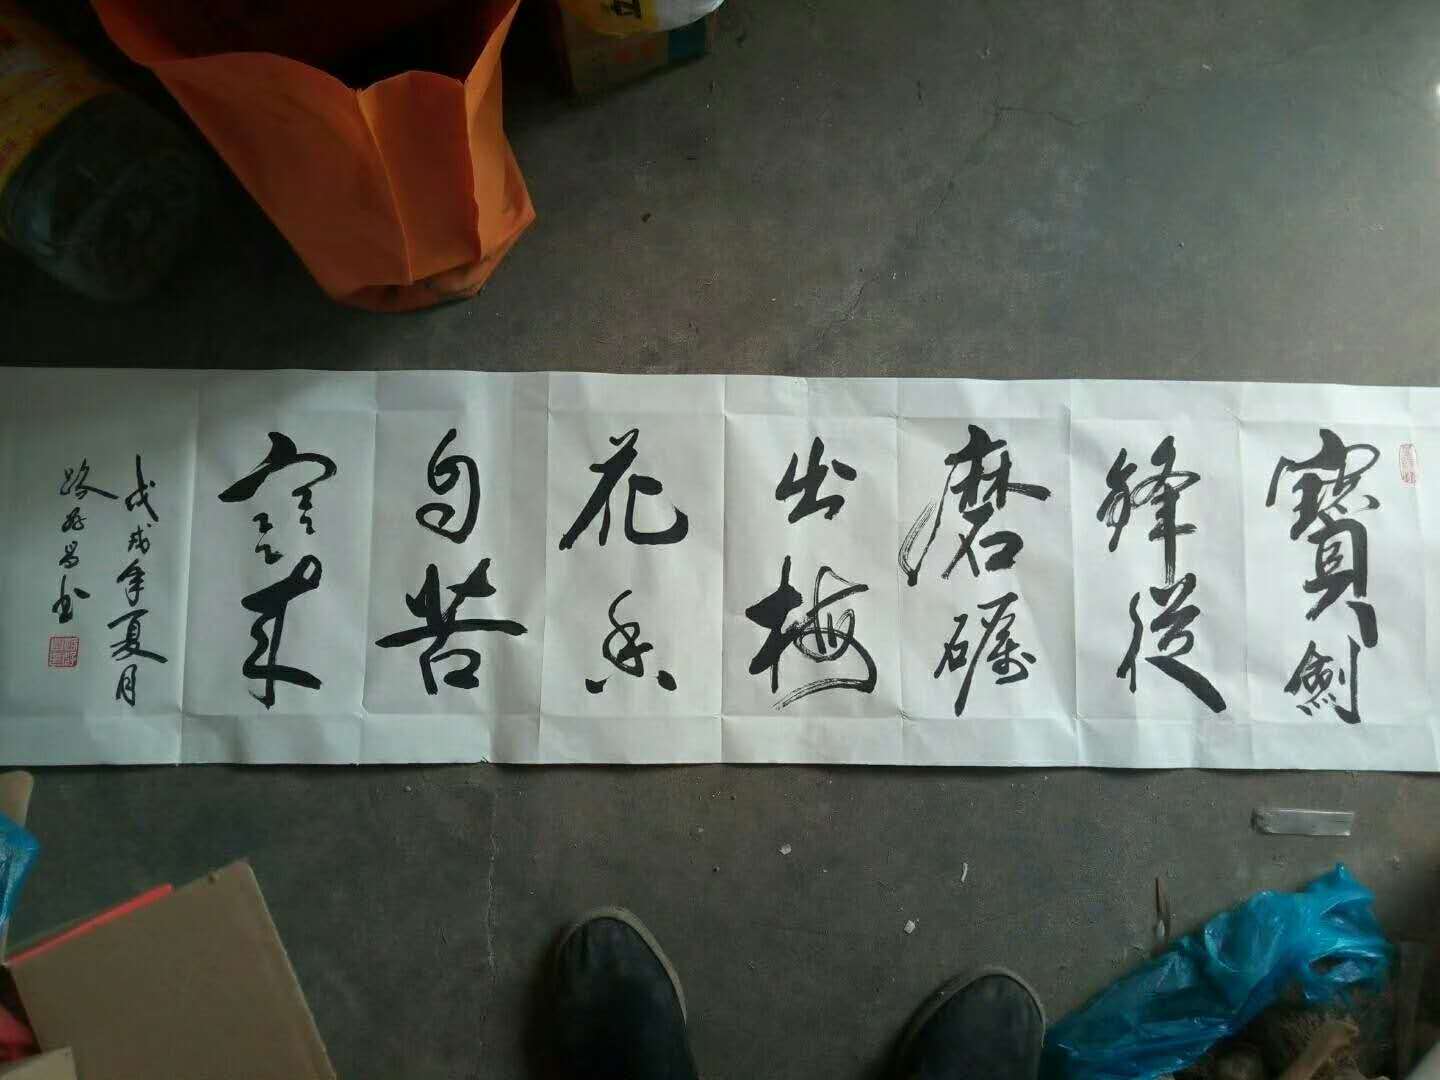 寶劍
鋒從
磨礪
出梅
花香
自苦
寒來
戊戌年夏月
昌书
立